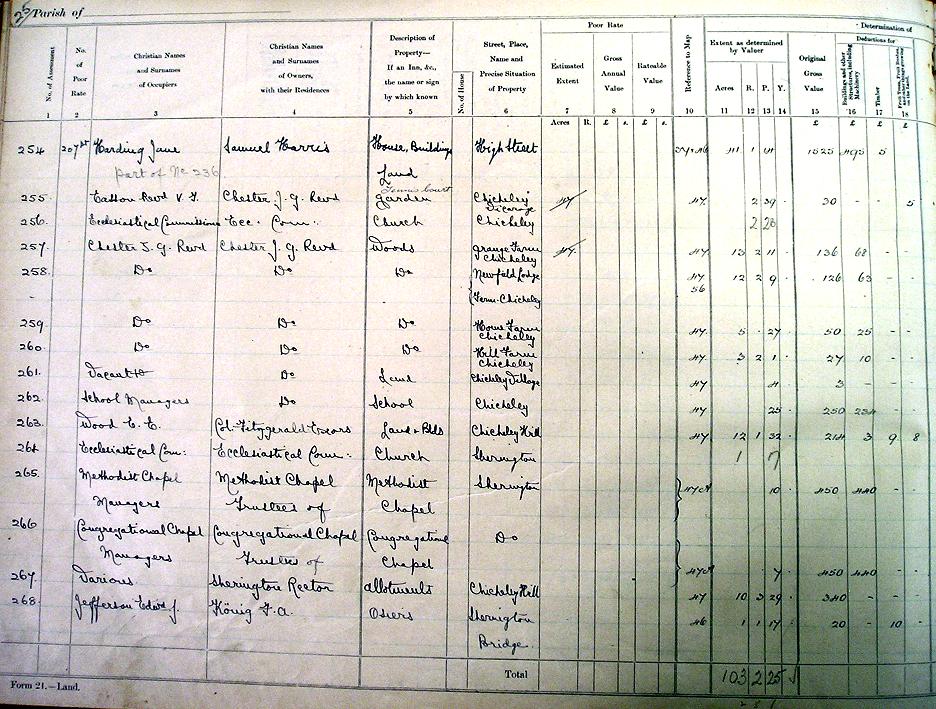 25 Parish of
Poor Rate
Determination of
No. of Assessment
No. of Poor Rate
Christian Names and Surnames of Occupiers
Christian Names and Surnames of Owners, with their Residences
Description of Property— If an Inn, &c., the name or sign by which known
No. of House
Street, Place, Name and Precise Situation of Property
Estimated Extent
Gross Annual Value
Rateable Value
Reference to Map
Extent as determined by Valuer
Original Gross Value
Deductions for
Buildings and other Structures, including Machinery
Timber
Acres R. P. Y.
1 2 3 4 5 6 7 8 9 10 11 12 13 14 15 16 17 18
Acres R. £ s. £ s. £ £ £ £
254 Harding Jane Samuel Harris House, Buildings High Street 1525 5
Part of No 236 Land
Tennis Court
255 Easson Revd V. G. Chester J. G. Revd garden Chicheley Vicarage 47 47 2 39 30 - - 5
256 Ecclesiastical Commissions Ecc Com: Church Chicheley 2 28
257 Chester J. G. Revd Chester J. G. Revd Woods Grange Farm Chicheley 47 47 13 2 11 136 68 - -
258 Do Do Do Newfield Lodge 47 12 2 9 126 63 - -
Farm Chicheley 56
259 Do Do Do Home Farm Chicheley 47 5 - 27 50 25 - -
260 Do Do Do Hill Farm Chicheley 47 3 2 1 27 10 - -
261 Vacant Do Land Chicheley Village 47 4 3 - - -
262 School Managers Do School Chicheley 47 25 250 234 - -
263 Wood E. E. Col. Fitzgerald Land & Blds Chicheley Hill 47 12 1 32 214 3 9 8
264 Ecclesiastical Com: Ecclesiastical Com: Church Sherington 1 7
265 Methodist Chapel Methodist Chapel Methodist Sherington 10 450 440 - -
Managers Trustees of Chapel
266 Congregational Chapel Congregational Chapel Congregational Do
Managers Trustees of Chapel 7 450 440 - -
267 Various Sherington Rector allotments Chicheley Hill 47 10 3 29 340 - - -
268 Jefferson Edwd J. König F. A. Osiers Sherington 46 1 1 17 20 - 10 -
Bridge
Total 103 2 25
Form 21.—Land.